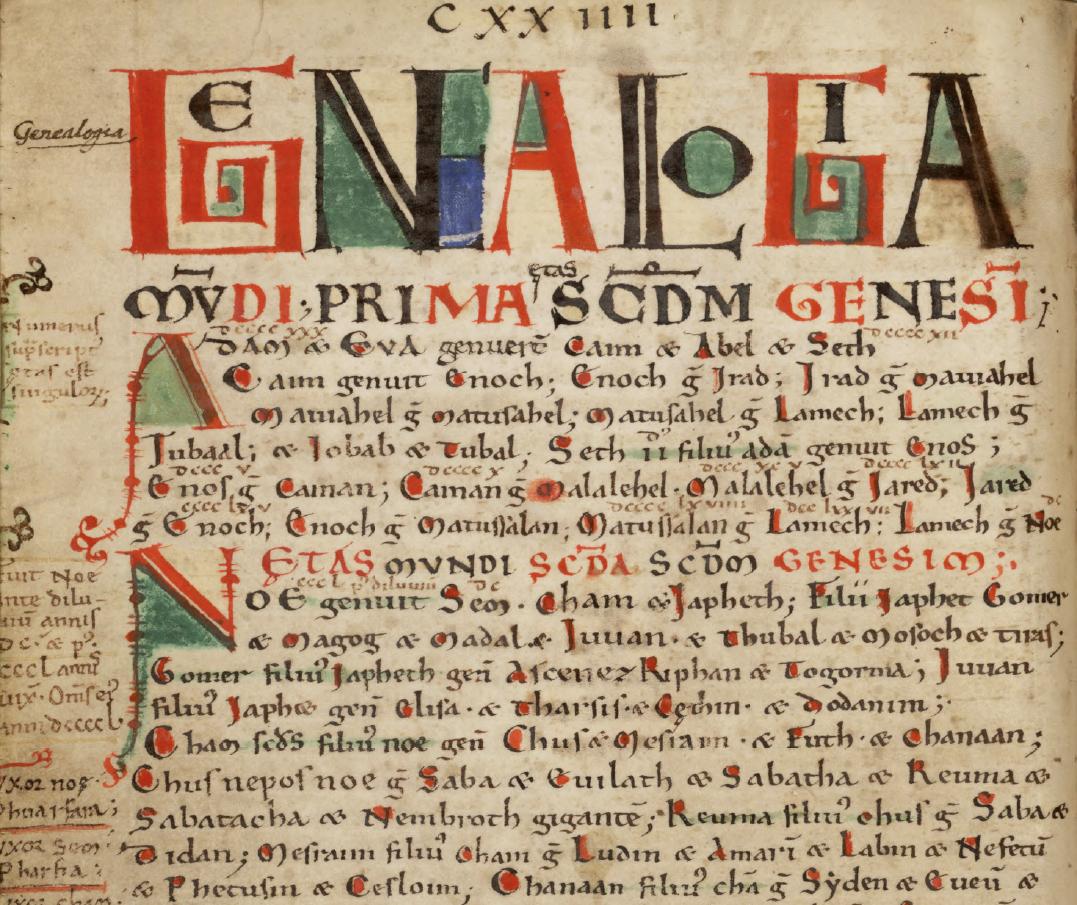 CXXIIII
Genealogia
GENALOGIA
M̄VDI; PRIMA etas SCD̄M GENESĪ;
dcccc xxx dcccc xii
ADAM & EVA genuer̄t Caim & Abel & Seth
Caim genuit Enoch; Enoch ḡ Irad; Irad ḡ Mawiahel
Mawiahel ḡ Matusahel; Matusahel ḡ Lamech; Lamech ḡ
Iubaal; & Iobab & Tubal; Seth ii filiu᾽ adā genuit Enos;
dcccc v dcccc x dccc xc v dcccc lxii
Enos ḡ Cainan; Cainan ḡ Malalehel. Malalehel ḡ Iared; Iared
ḡ Enoch; Enoch ḡ Matussalan; Matussalan ḡ Lamech; Lamech ḡ Noe
ETAS MVNDI SCD̄A SCD̄M GENESIM;
NOE genuit Sem. Cham & Iapheth; Filii Iaphet Gomer
& Magog & Madal & Iuuan. & Thubal & Mosoch & tiras;
Gomer filiu᾽ Iapheth gen̄ Ascenez Riphan & Togorma; Iuuan
filiu᾽ Iaphe gen̄ Elisa. & Tharsis. & Cethin. & Dodanim;
Cham scd̄s filiu᾽ noe gen̄ Chus & Mesraim. & Futh. & Chanaan;
Chus nepos noe ḡ Saba & Euilath & Sabatha & Reuma &
Sabatacha & Nembroth gigantē; Reuma filiu᾽ chus ḡ Saba &
Didan; Mesraim filiu᾽ Cham ḡ Ludin & Amarī & Labin & Nefetū
& Phetusin & Cesloim; Chanaan filiu᾽ chā ḡ Syden & Eueū &
Numerus
suꝑscript
etas est
singulorꝫ
fuit Noe
nte dilu-
uiū annis
dc. & p᾽
cccl annis
uix. Om̄s
anni dcccc l
Vxor noe
Phuarfara;
Vxor Sem
Pharfia;